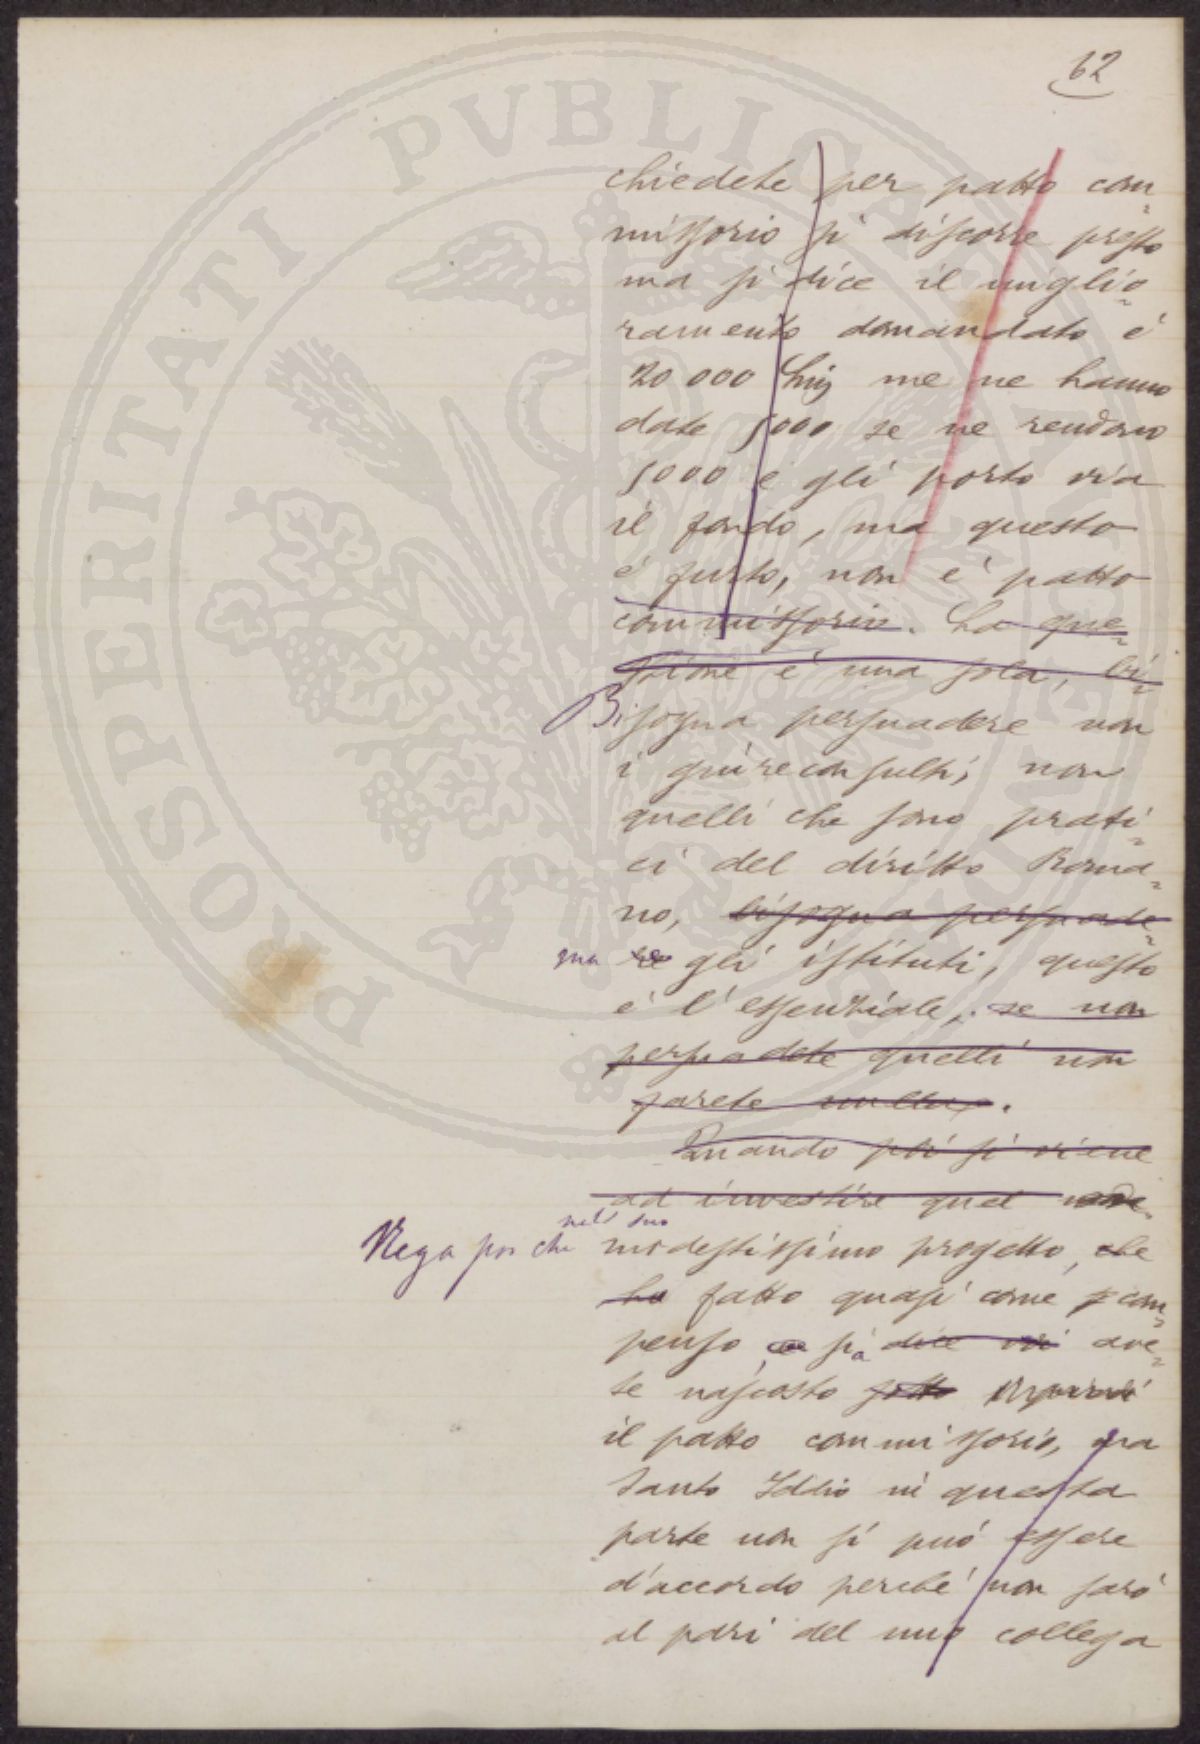 62
chiedete per patto com-
missorio si discorre presto
ma si dice il miglio-
ramento domandato è
20 000 me ne hanno
date 5000 se ne rendono
5000 e gli porto via
il fondo, ma questo
è giusto, non è patto
commissorio. La que-
stione è una sola, bi-
Bisogna persuadere non
i giureconsulti, non
quelli che sono prati-
ci del diritto Roma-
no, bisogna persuade-
ma re gli istituti, questo
è l'essenziale, se non
persuadete quelli non
farete nulla.
Quando poi si viene
ad investire quel
nel suo
Nega poi che modestissimo progetto, che
ha fatto quasi come com-
penso, si a dice voi ave-
te nascosto sotto
il patto commissorio, ma
Santo Iddio in questa
parte non si può essere
d'accordo perché non sarò
al pari del mio collega
PROSPERITATI PVBLICAE